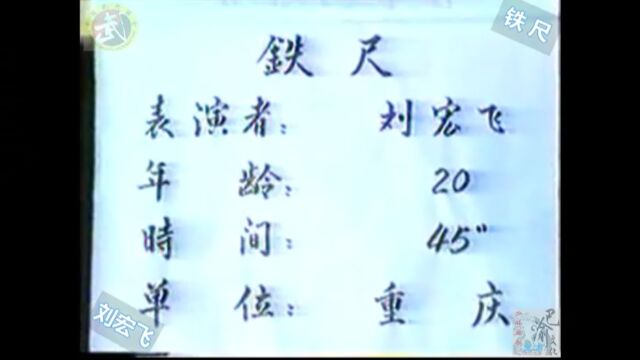 铁尺
鉄 尺
表演者： 刘宏飞
年 龄： 20
時 间： 45"
单 位： 重 庆
刘宏飞